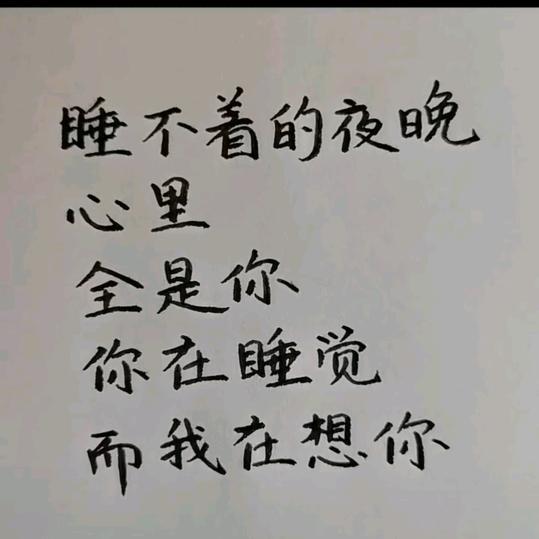 睡不着的夜晚
心里
全是你
你在睡觉
而我在想你